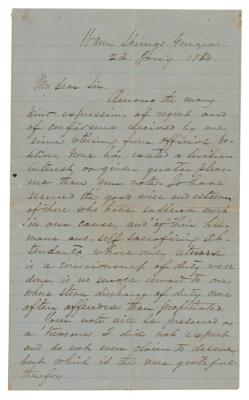 Warm Springs, Georgia
2d. Jan'y 1864
My Dear Sir.
Among the many
kind expressions of regret and
of confidence received by me
since retiring from official po-
sition, none has excited a livelier
interest or given greater pleas-
ure than your note. To have
secured the good will and esteem
of those who have suffered much
in our cause, and of their hu-
mane and self sacrificing at-
tendants whose only
is a consciousness of duty well
done, is no small reward to one
whose stern discharge of duty more
often offended than propitiated.
Your note will be preserved as
a treasure I did not expect
and do not even claim to deserve
but which is the more grateful
therefor.